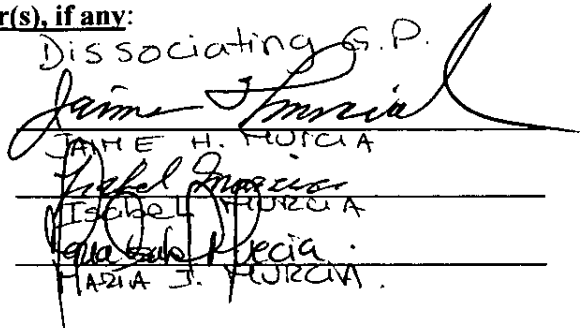 r(s), if any:
Dissociating G.P.
Jaime H Murcia
JAIME H. MURCIA
Isabel Murcia
Isabel MURCIA
Murcia
MARIA J. MURCIA.